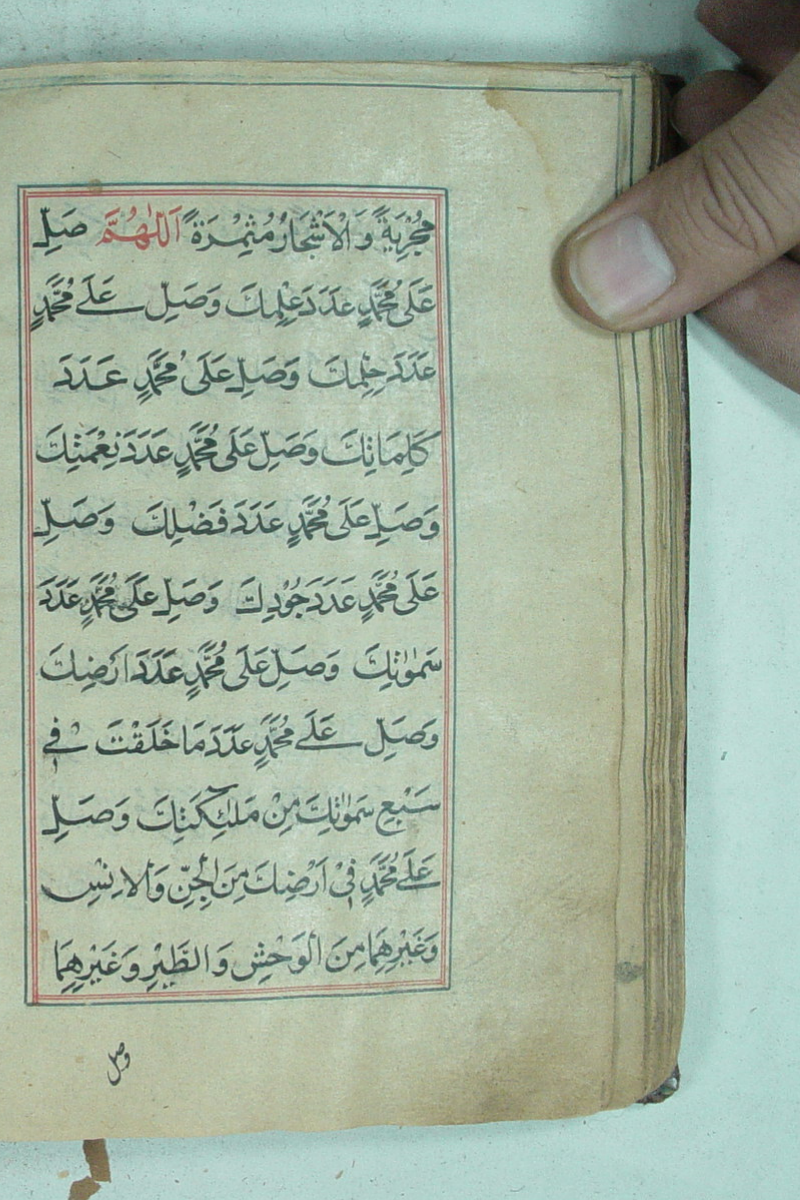 مُجْرِيَةً وَالْاَشْجَارُ مُثْمِرَةً اَللّٰهُمَّ صَلِّ
عَلَى مُحَمَّدٍ عَدَدَ عِلْمِكَ وَصَلِّ عَلَے مُحَمَّدٍ
عَدَدَ حِلْمِكَ وَصَلِّ عَلَى مُحَمَّدٍ عَدَدَ
كَلِمَاتِكَ وَصَلِّ عَلَى مُحَمَّدٍ عَدَدَ نِعْمَتِكَ
وَصَلِّ عَلَى مُحَمَّدٍ عَدَدَ فَضْلِكَ وَصَلِّ
عَلَى مُحَمَّدٍ عَدَدَ جُوْدِكَ وَصَلِّ عَلَى مُحَمَّدٍ عَدَدَ
سَمٰوٰتِكَ وَصَلِّ عَلَى مُحَمَّدٍ عَدَدَ اَرْضِكَ
وَصَلِّ عَلَے مُحَمَّدٍ عَدَدَ مَا خَلَقْتَ فِے
سَبْعِ سَمٰوٰتِكَ مِنْ مَلٰۤئِكَتِكَ وَصَلِّ
عَلَے مُحَمَّدٍ فِى اَرْضِكَ مِنَ الْجِنِّ وَالْاِنْسِ
وَغَيْرِهِمَا مِنَ الْوَحْشِ وَالطَّيْرِ وَغَيْرِهِمَا
وصل